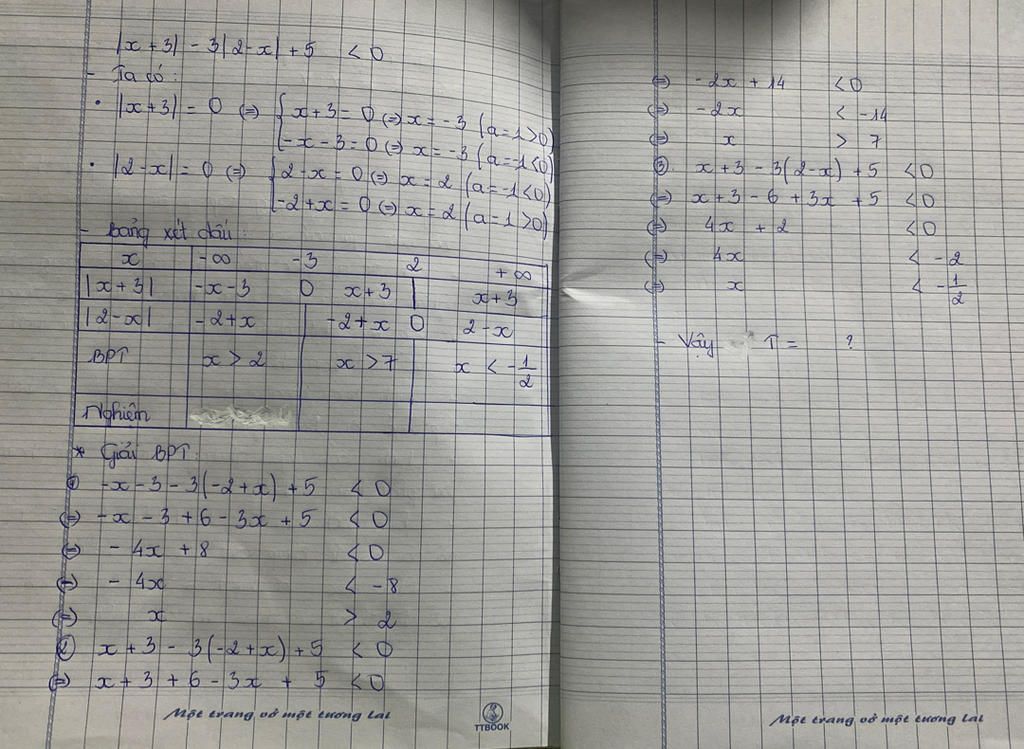 |x + 3| - 3|2 - x| + 5 < 0
- Ta có :
• |x + 3| = 0 (=) { x + 3 = 0 (=) x = -3 (a = 1 > 0)
-x - 3 = 0 (=) x = -3 (a = -1 < 0)
• |2 - x| = 0 (=) { 2 - x = 0 (=) x = 2 (a = -1 < 0)
-2 + x = 0 (=) x = 2 (a = 1 > 0)
- Bảng xét dấu :
x -∞ -3 2 +∞
|x + 3| -x - 3 0 x + 3 | x + 3
|2 - x| -2 + x -2 + x 0 2 - x
BPT x > 2 x > 7 x < -1/2
Nghiệm
* Giải BPT :
① -x - 3 - 3(-2 + x) + 5 < 0
(=) -x - 3 + 6 - 3x + 5 < 0
(=) - 4x + 8 < 0
(=) - 4x < -8
(=) x > 2
② x + 3 - 3(-2 + x) + 5 < 0
(=) x + 3 + 6 - 3x + 5 < 0
Một trang vở một tương lai
TTBOOK
(=) -2x + 14 < 0
(=) -2x < -14
(=) x > 7
③ x + 3 - 3(2 - x) + 5 < 0
(=) x + 3 - 6 + 3x + 5 < 0
(=) 4x + 2 < 0
(=) 4x < -2
(=) x < -1/2
- Vậy T = ?
Một trang vở một tương lai